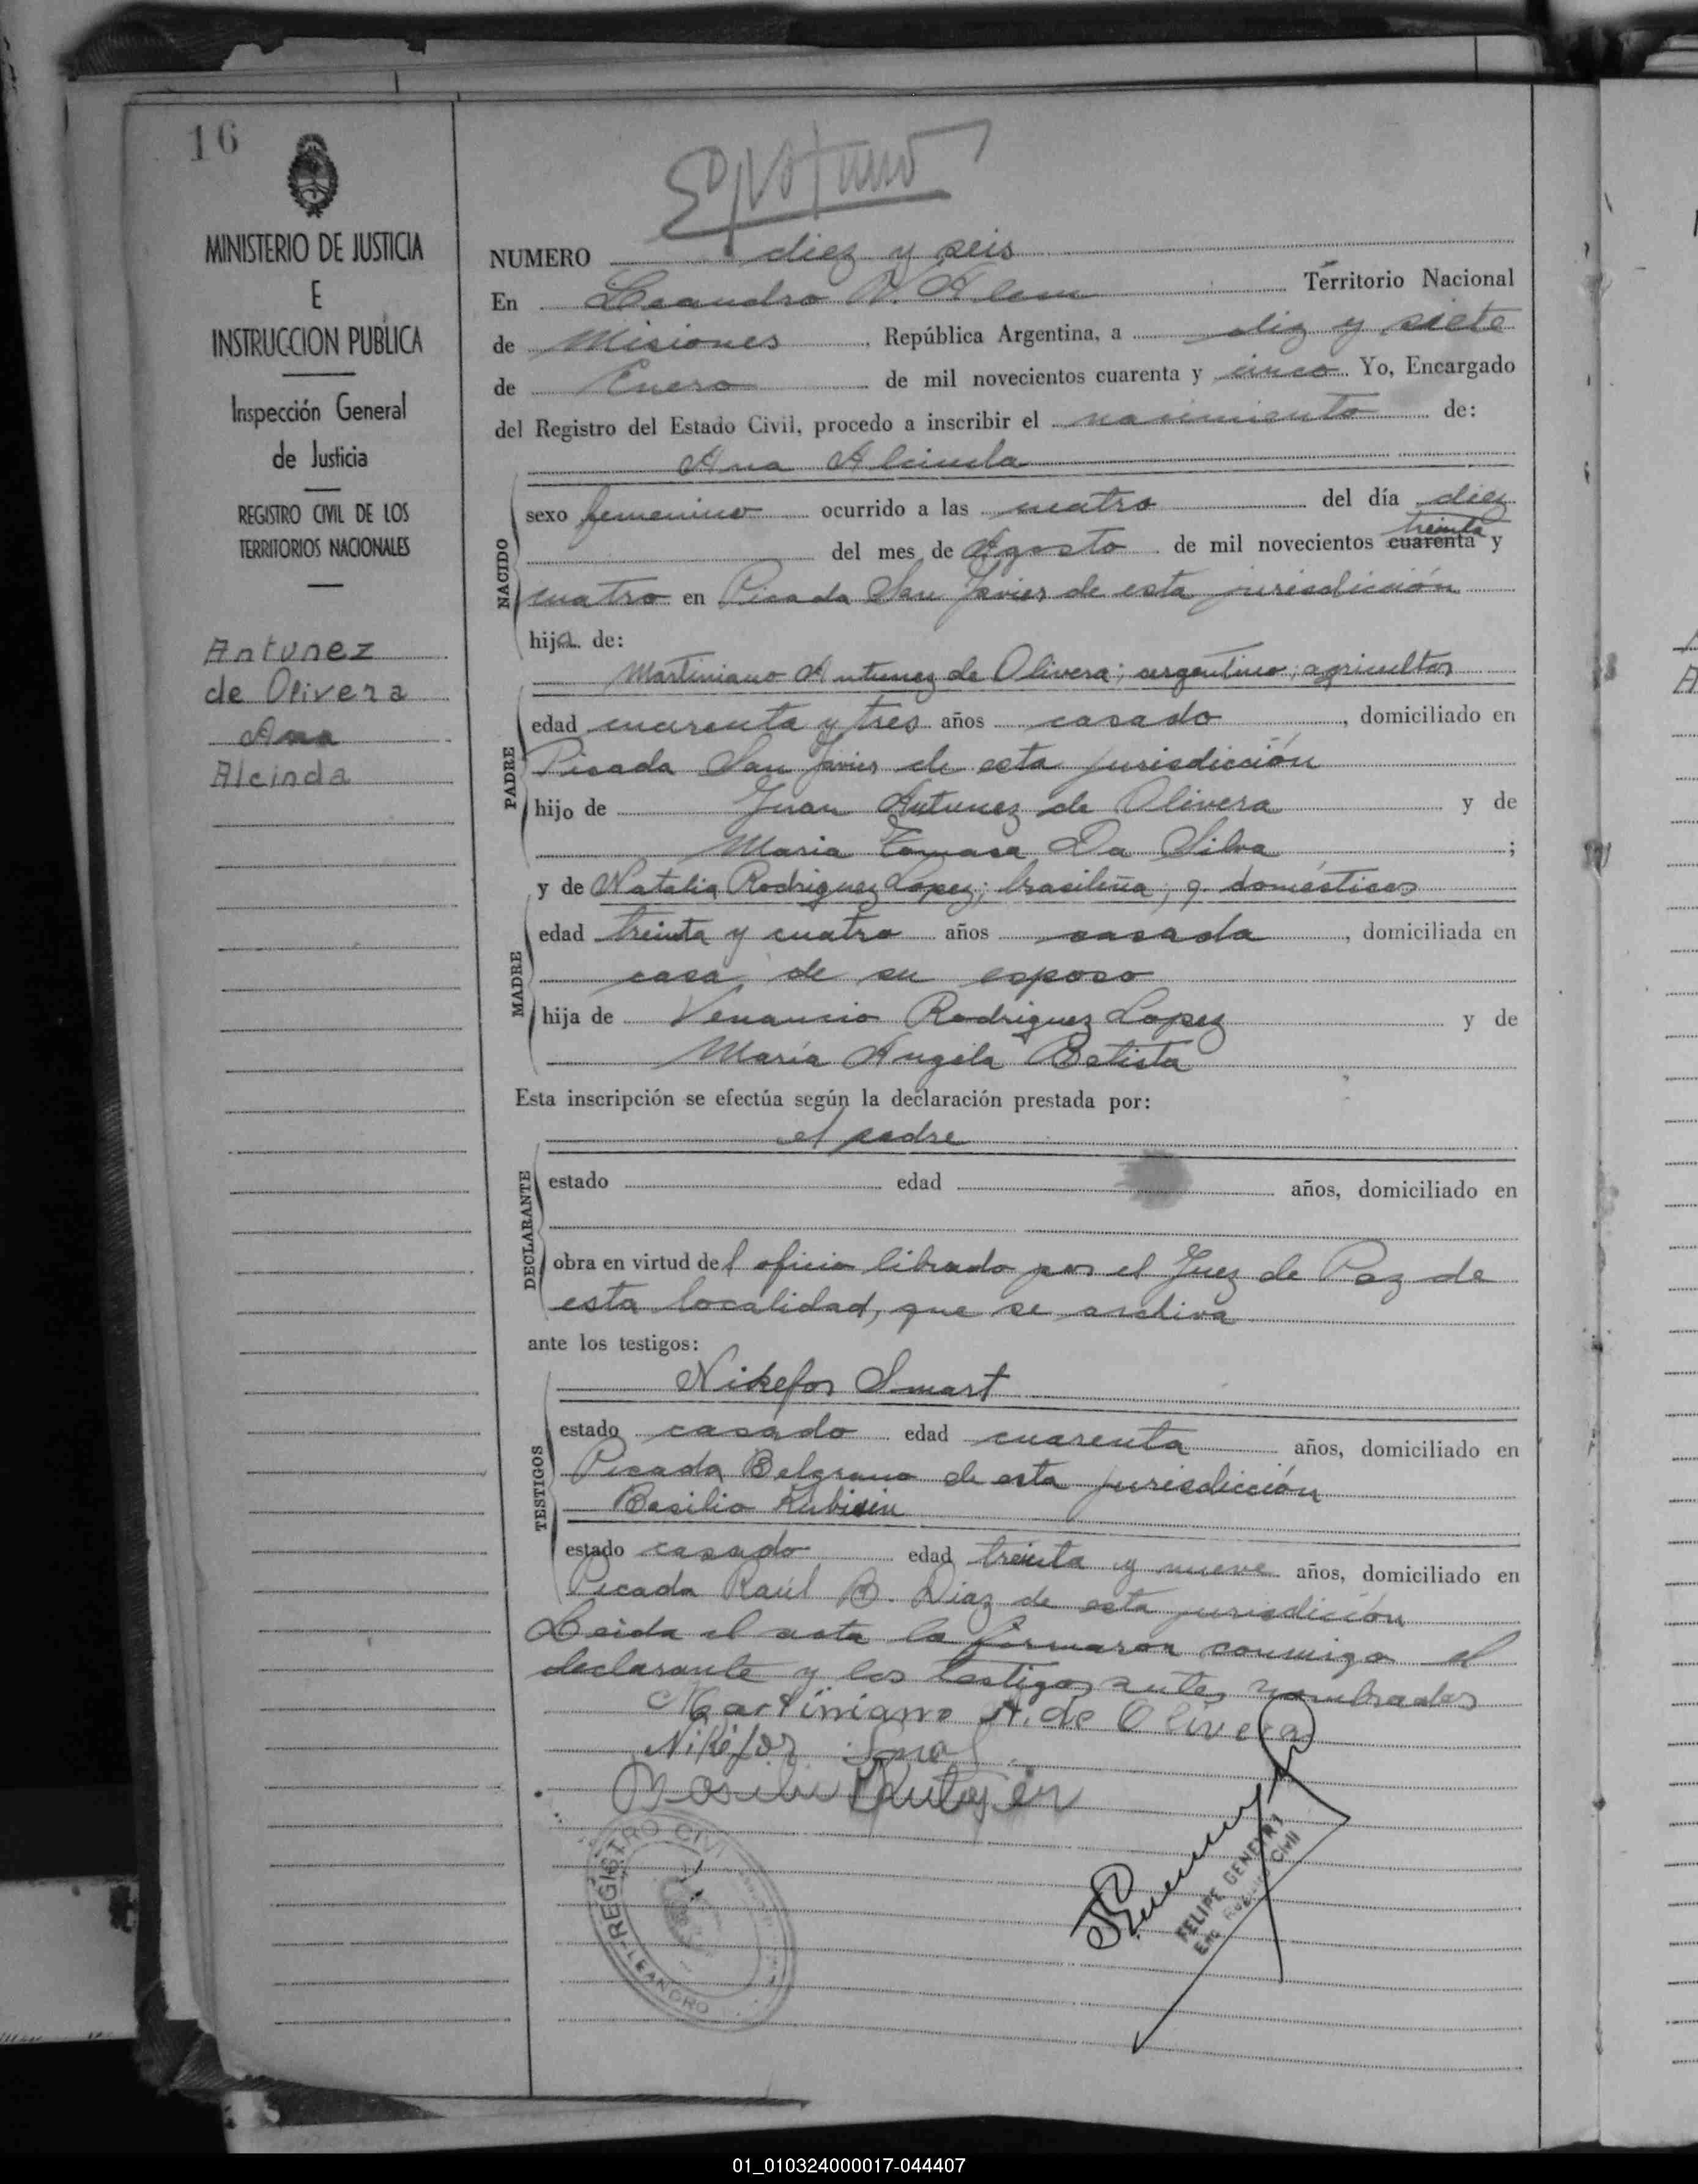 16
MINISTERIO DE JUSTICIA
E
INSTRUCCION PUBLICA
Inspección General
de Justicia
REGISTRO CIVIL DE LOS
TERRITORIOS NACIONALES
Antunez
de Olivera
Ana
Alcinda
NUMERO diez y seis
En Leandro N. Alem Territorio Nacional
de Misiones República Argentina, a diez y siete
de Enero de mil novecientos cuarenta y cinco Yo, Encargado
del Registro del Estado Civil, procedo a inscribir el nacimiento de:
Ana Alcinda
NACIDO
sexo femenino ocurrido a las cuatro del día diez
treinta
del mes de Agosto de mil novecientos cuarenta y
cuatro en Picada San Javier de esta jurisdicción
hija de:
Martiniano Antunez de Olivera; argentino; agricultor
PADRE
edad cuarenta y tres años casado, domiciliado en
Picada San Javier de esta jurisdicción
hijo de Juan Antunez de Olivera y de
Maria Tomasa Da Silva;
y de Natalia Rodriguez Lopez; brasileña; q. domésticos
MADRE
edad treinta y cuatro años casada, domiciliada en
casa de su esposo
hija de Venancio Rodriguez Lopez y de
María Angela Batista
Esta inscripción se efectúa según la declaración prestada por:
el padre
DECLARANTE
estado edad años, domiciliado en
obra en virtud del oficio librado por el Juez de Paz de
esta localidad, que se archiva
ante los testigos:
Nikefor Smart
TESTIGOS
estado casado edad cuarenta años, domiciliado en
Picada Belgrano de esta jurisdicción
Basilio
estado casado edad treinta y nueve años, domiciliado en
Picada Raúl B. Diaz de esta jurisdicción
Leida el acta la firmaron conmigo el
declarante y los testigos antes nombrados
Martiniano A. de Olivera
Nikifor
FELIPE GENEYRI
Enc. Registro Civil
REGISTRO CIVIL
LEANDRO
01_010324000017-044407